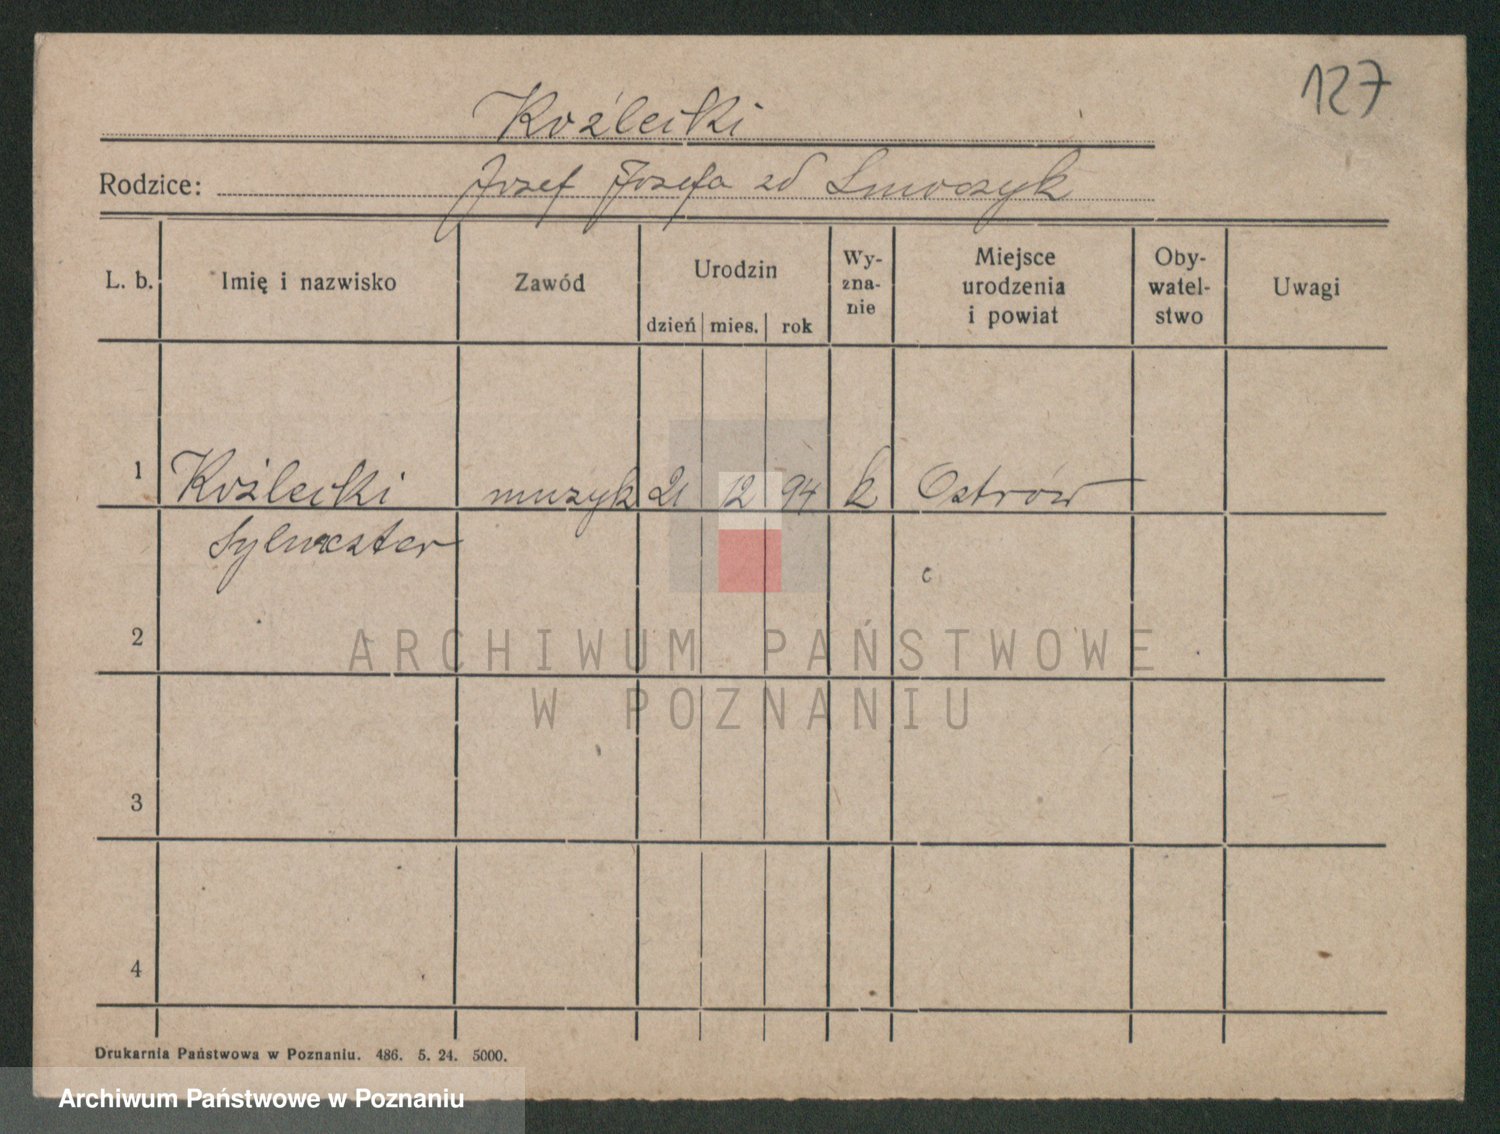 127
Koźlecki
Rodzice: Jozef Jozefa zd Smoczyk
L. b. Imię i nazwisko Zawód Urodzin Wy-zna-nie Miejsce urodzenia i powiat Oby-watel-stwo Uwagi
dzień mies. rok
1 Koźlecki muzyk 21 12 94 k Ostrów
Sylwester
2
ARCHIWUM PAŃSTWOWE
W POZNANIU
3
4
Drukarnia Państwowa w Poznaniu. 486. 5. 24. 5000.
Archiwum Państwowe w Poznaniu